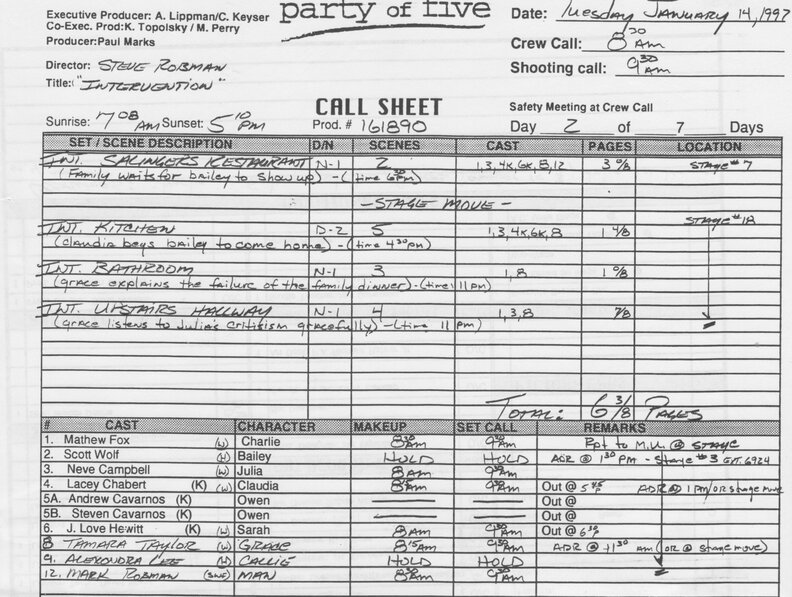 Executive Producer: A. Lippman/C. Keyser
Co-Exec. Prod:K. Topolsky / M. Perry
Producer:Paul Marks
party of five
Date: TUESDAY JANUARY 14, 1997
Crew Call: 8 30 AM
Shooting call: 9 30 AM
Director: STEVE ROBMAN
Title: "INTERVENTION"
Sunrise: 7 08 AM Sunset: 5 10 PM
CALL SHEET
Prod. # 161890
Safety Meeting at Crew Call
Day 2 of 7 Days
SET / SCENE DESCRIPTION D/N SCENES CAST PAGES LOCATION
INT. SALINGERS RESTAURANT N-1 2 1,3,4K,6K,8,12 3 0/8 STAGE # 7
(Family waits for bailey to show up) - (time 6 30 pm)
- STAGE MOVE -
STAGE # 18
INT. KITCHEN D-2 5 1,3,4K,6K,8 1 4/8
(claudia begs bailey to come home) - (time 4 30 pm)
INT. BATHROOM N-1 3 1,8 1 0/8
(grace explains the failure of the family dinner) - (time 11 pm)
INT. UPSTAIRS HALLWAY N-1 4 1,3,8 7/8
(grace listens to Julia's critisism gracefully) - (time 11 pm)
TOTAL: 6 3/8 PAGES
# CAST CHARACTER MAKEUP SET CALL REMARKS
1. Mathew Fox (W) Charlie 8 30 AM 9 30 AM Rpt to M.U. @ STAGE
2. Scott Wolf (H) Bailey HOLD HOLD ADR @ 1 30 PM - Stage # 3 EXT. 6924
3. Neve Campbell (W) Julia 8 AM 9 30 AM
4. Lacey Chabert (K) (W) Claudia 8 15 AM 9 30 AM Out @ 5 45 P ADR @ 1 PM/OR stage move
5A. Andrew Cavarnos (K) Owen Out @
5B. Steven Cavarnos (K) Owen Out @
6. J. Love Hewitt (K) (W) Sarah 8 AM 9 30 AM Out @ 6 30 P
8 TAMARA TAYLOR (W) GRACE 8 15 AM 9 30 AM ADR @ 11 30 am (OR @ stage move)
9. ALEXONDRA LEE (H) CALLIE HOLD HOLD
12. MARK ROBMAN (SWF) MAN 8 30 AM 9 30 AM